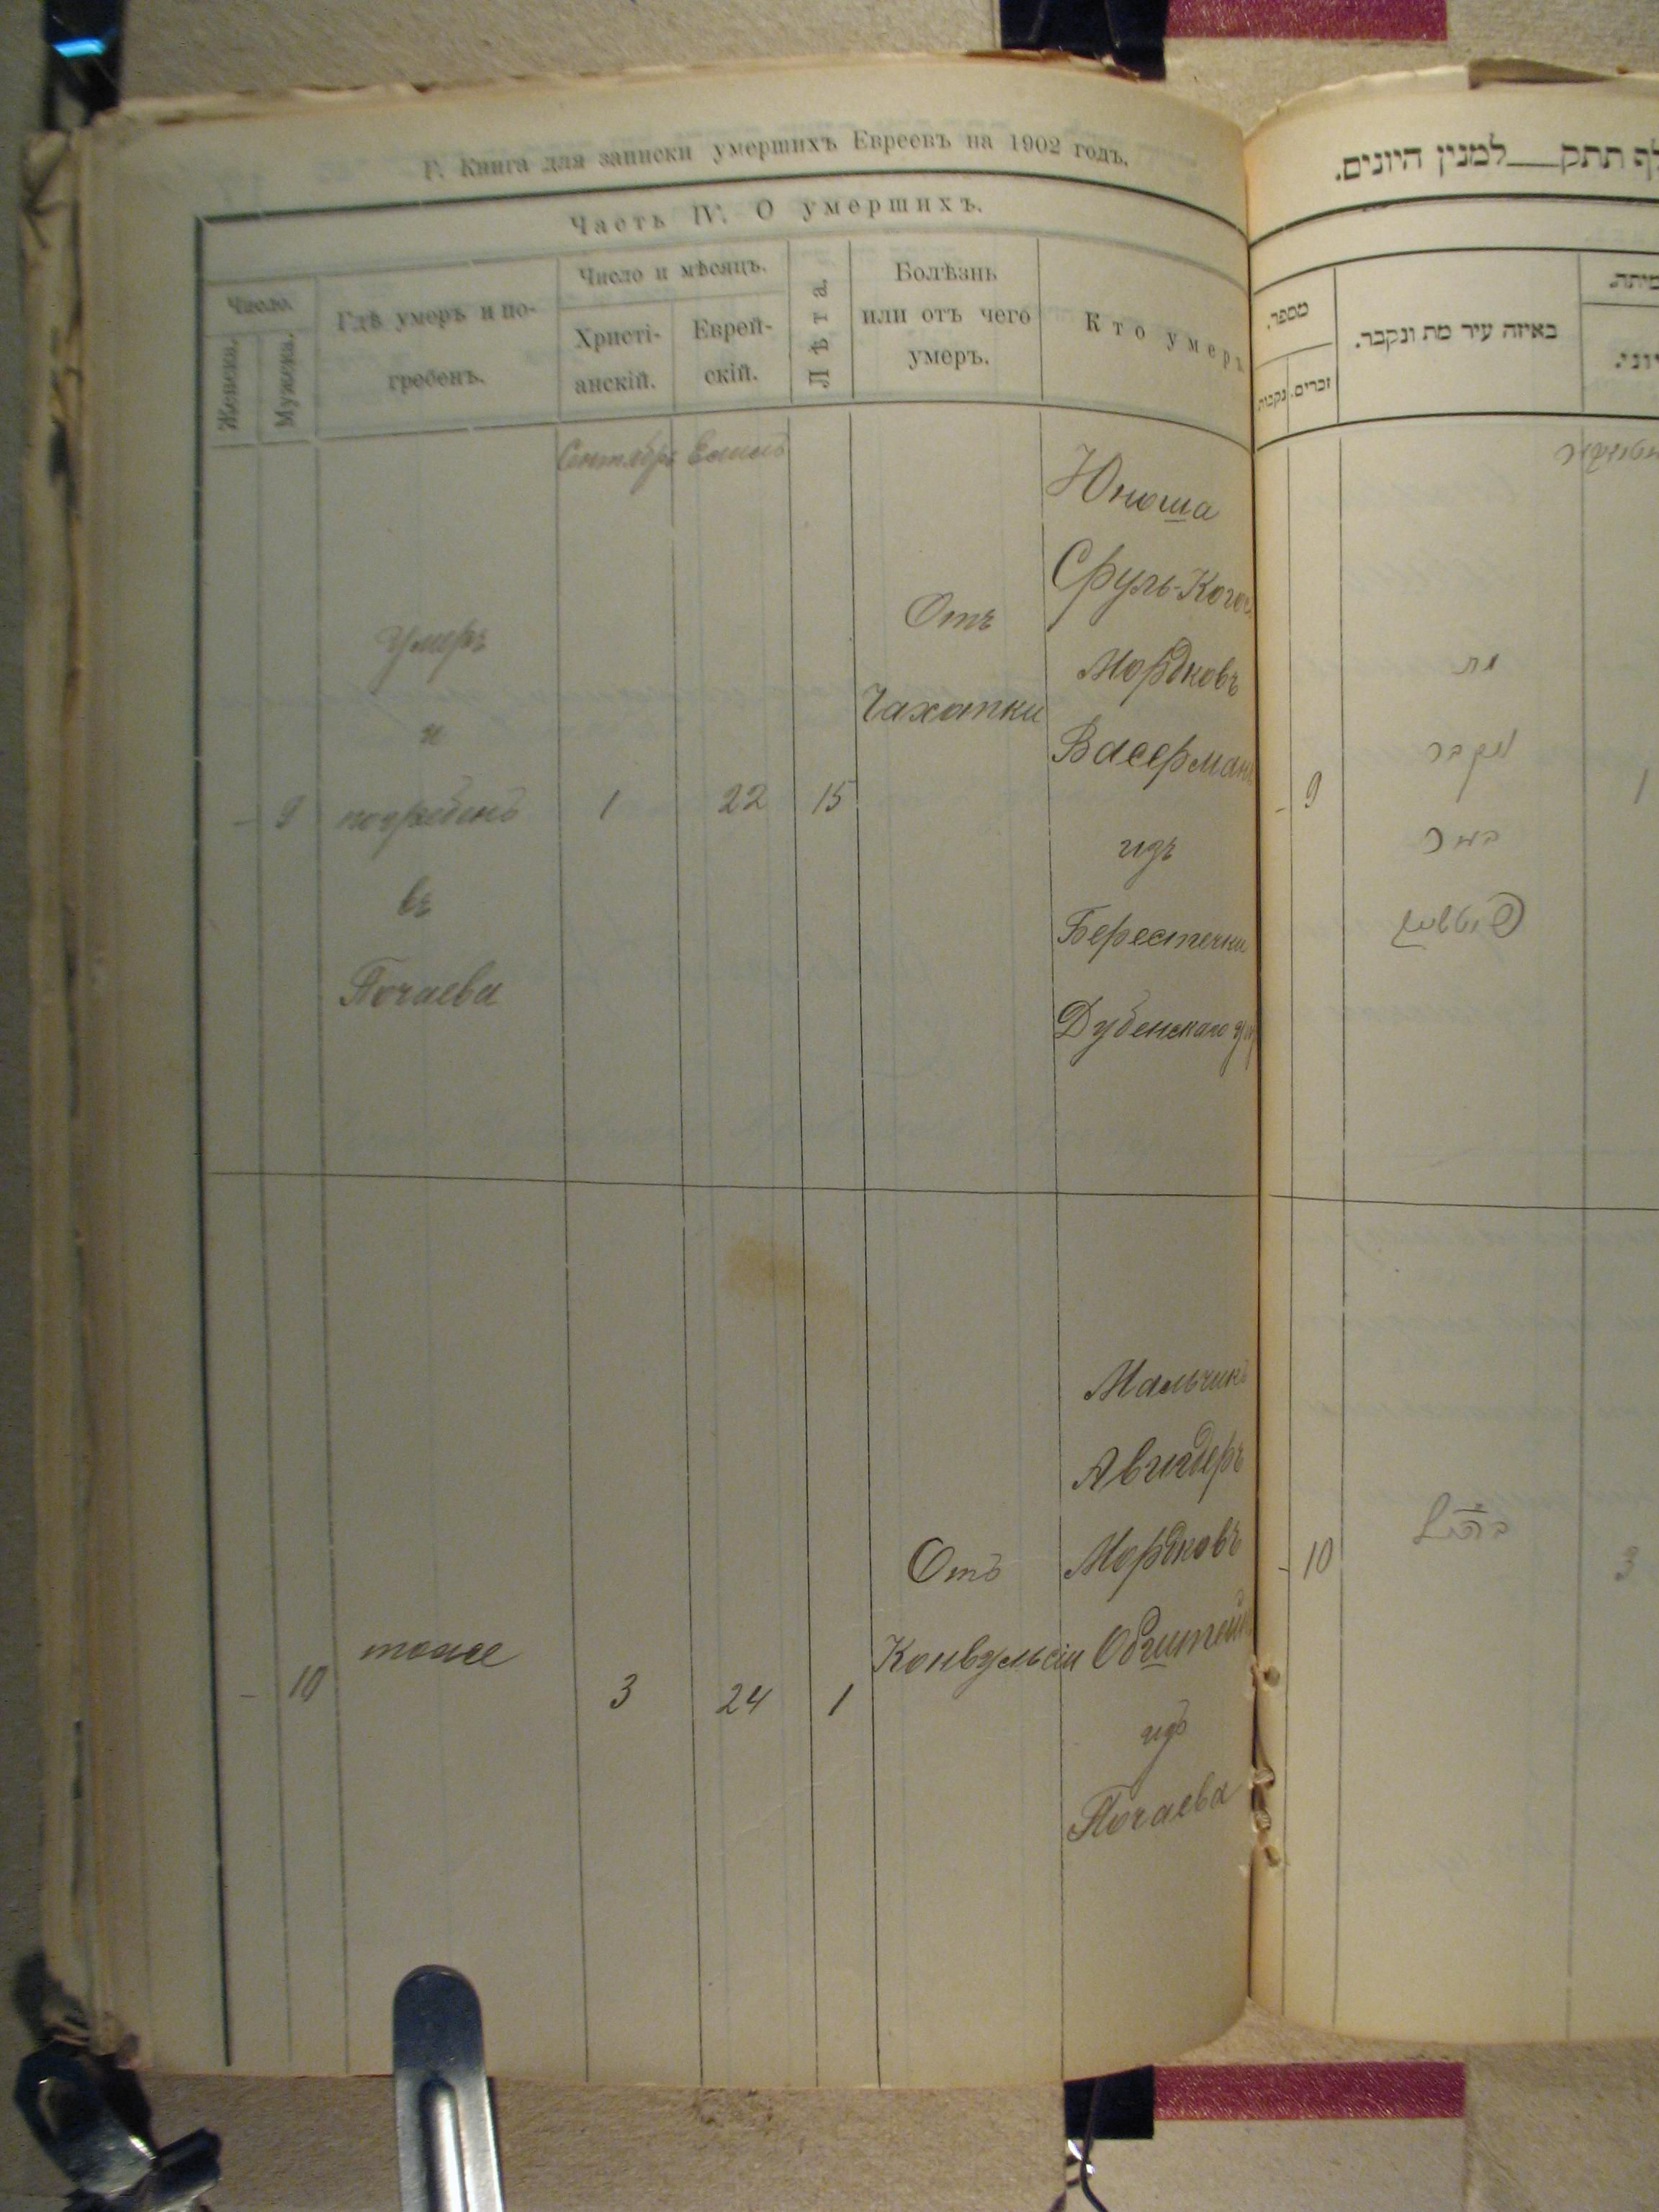 Г. Книга для записки умершихъ Евреевъ на 1902 годъ.
Часть IV. О умершихъ.
Число.
Женска.
Мужска.
Гдѣ умеръ и по-
гребенъ.
Число и мѣсяцъ.
Христі-
анскій.
Еврей-
скій.
Лѣта
Болѣзнь
или отъ чего
умеръ.
Кто умеръ
Сентября
Елюль
– 9
Умеръ
и
погребенъ
въ
Почаевѣ
1
22
15
Отъ
Чахотки
Юноша
Сруль-
Мордковъ
Васерманъ
изъ
Берестечки
Дубенскаго
– 10
тоже
3
24
1
Отъ
Конвульсіи
Мальчикъ
Авигдеръ
Мордковъ
изъ
Почаева
תתק למנין היונים.
מספר.
נקבות
זכרים.
באיזה עיר מת ונקבר.
– 9
מת
ונקבר
1
– 10
3